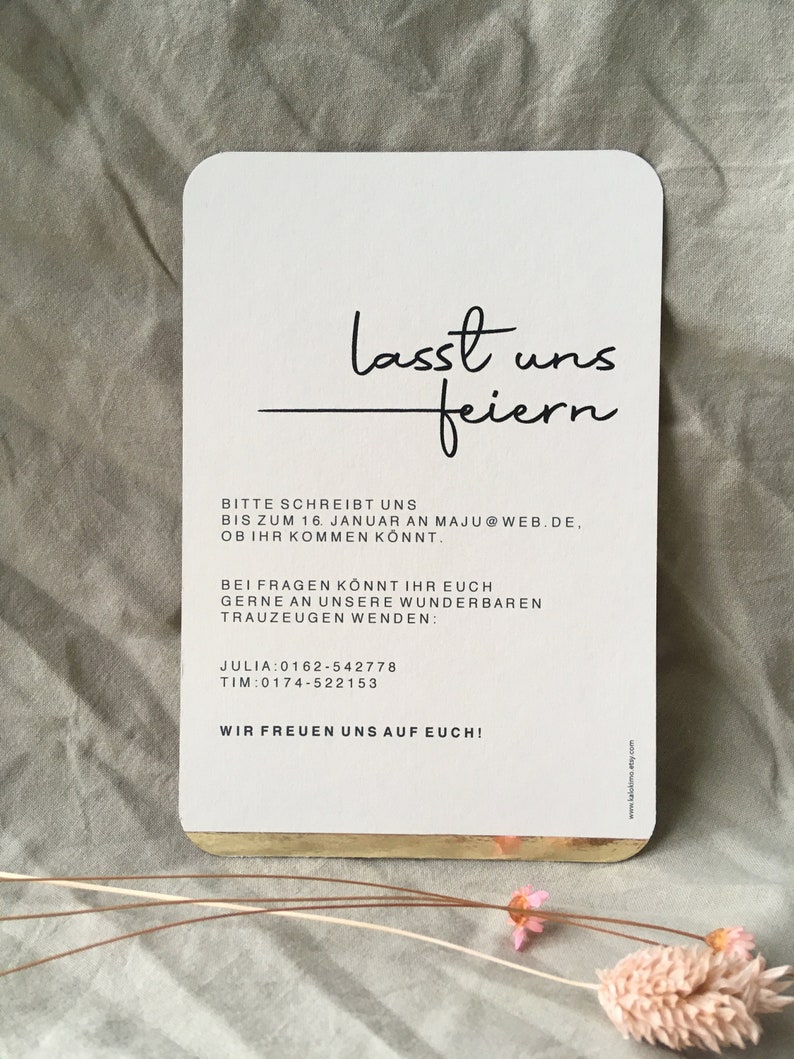 lasst uns
feiern
BITTE SCHREIBT UNS
BIS ZUM 16. JANUAR AN MAJU@WEB.DE,
OB IHR KOMMEN KÖNNT.
BEI FRAGEN KÖNNT IHR EUCH
GERNE AN UNSERE WUNDERBAREN
TRAUZEUGEN WENDEN:
JULIA:0162-542778
TIM:0174-522153
WIR FREUEN UNS AUF EUCH!
www.kalokimo.etsy.com